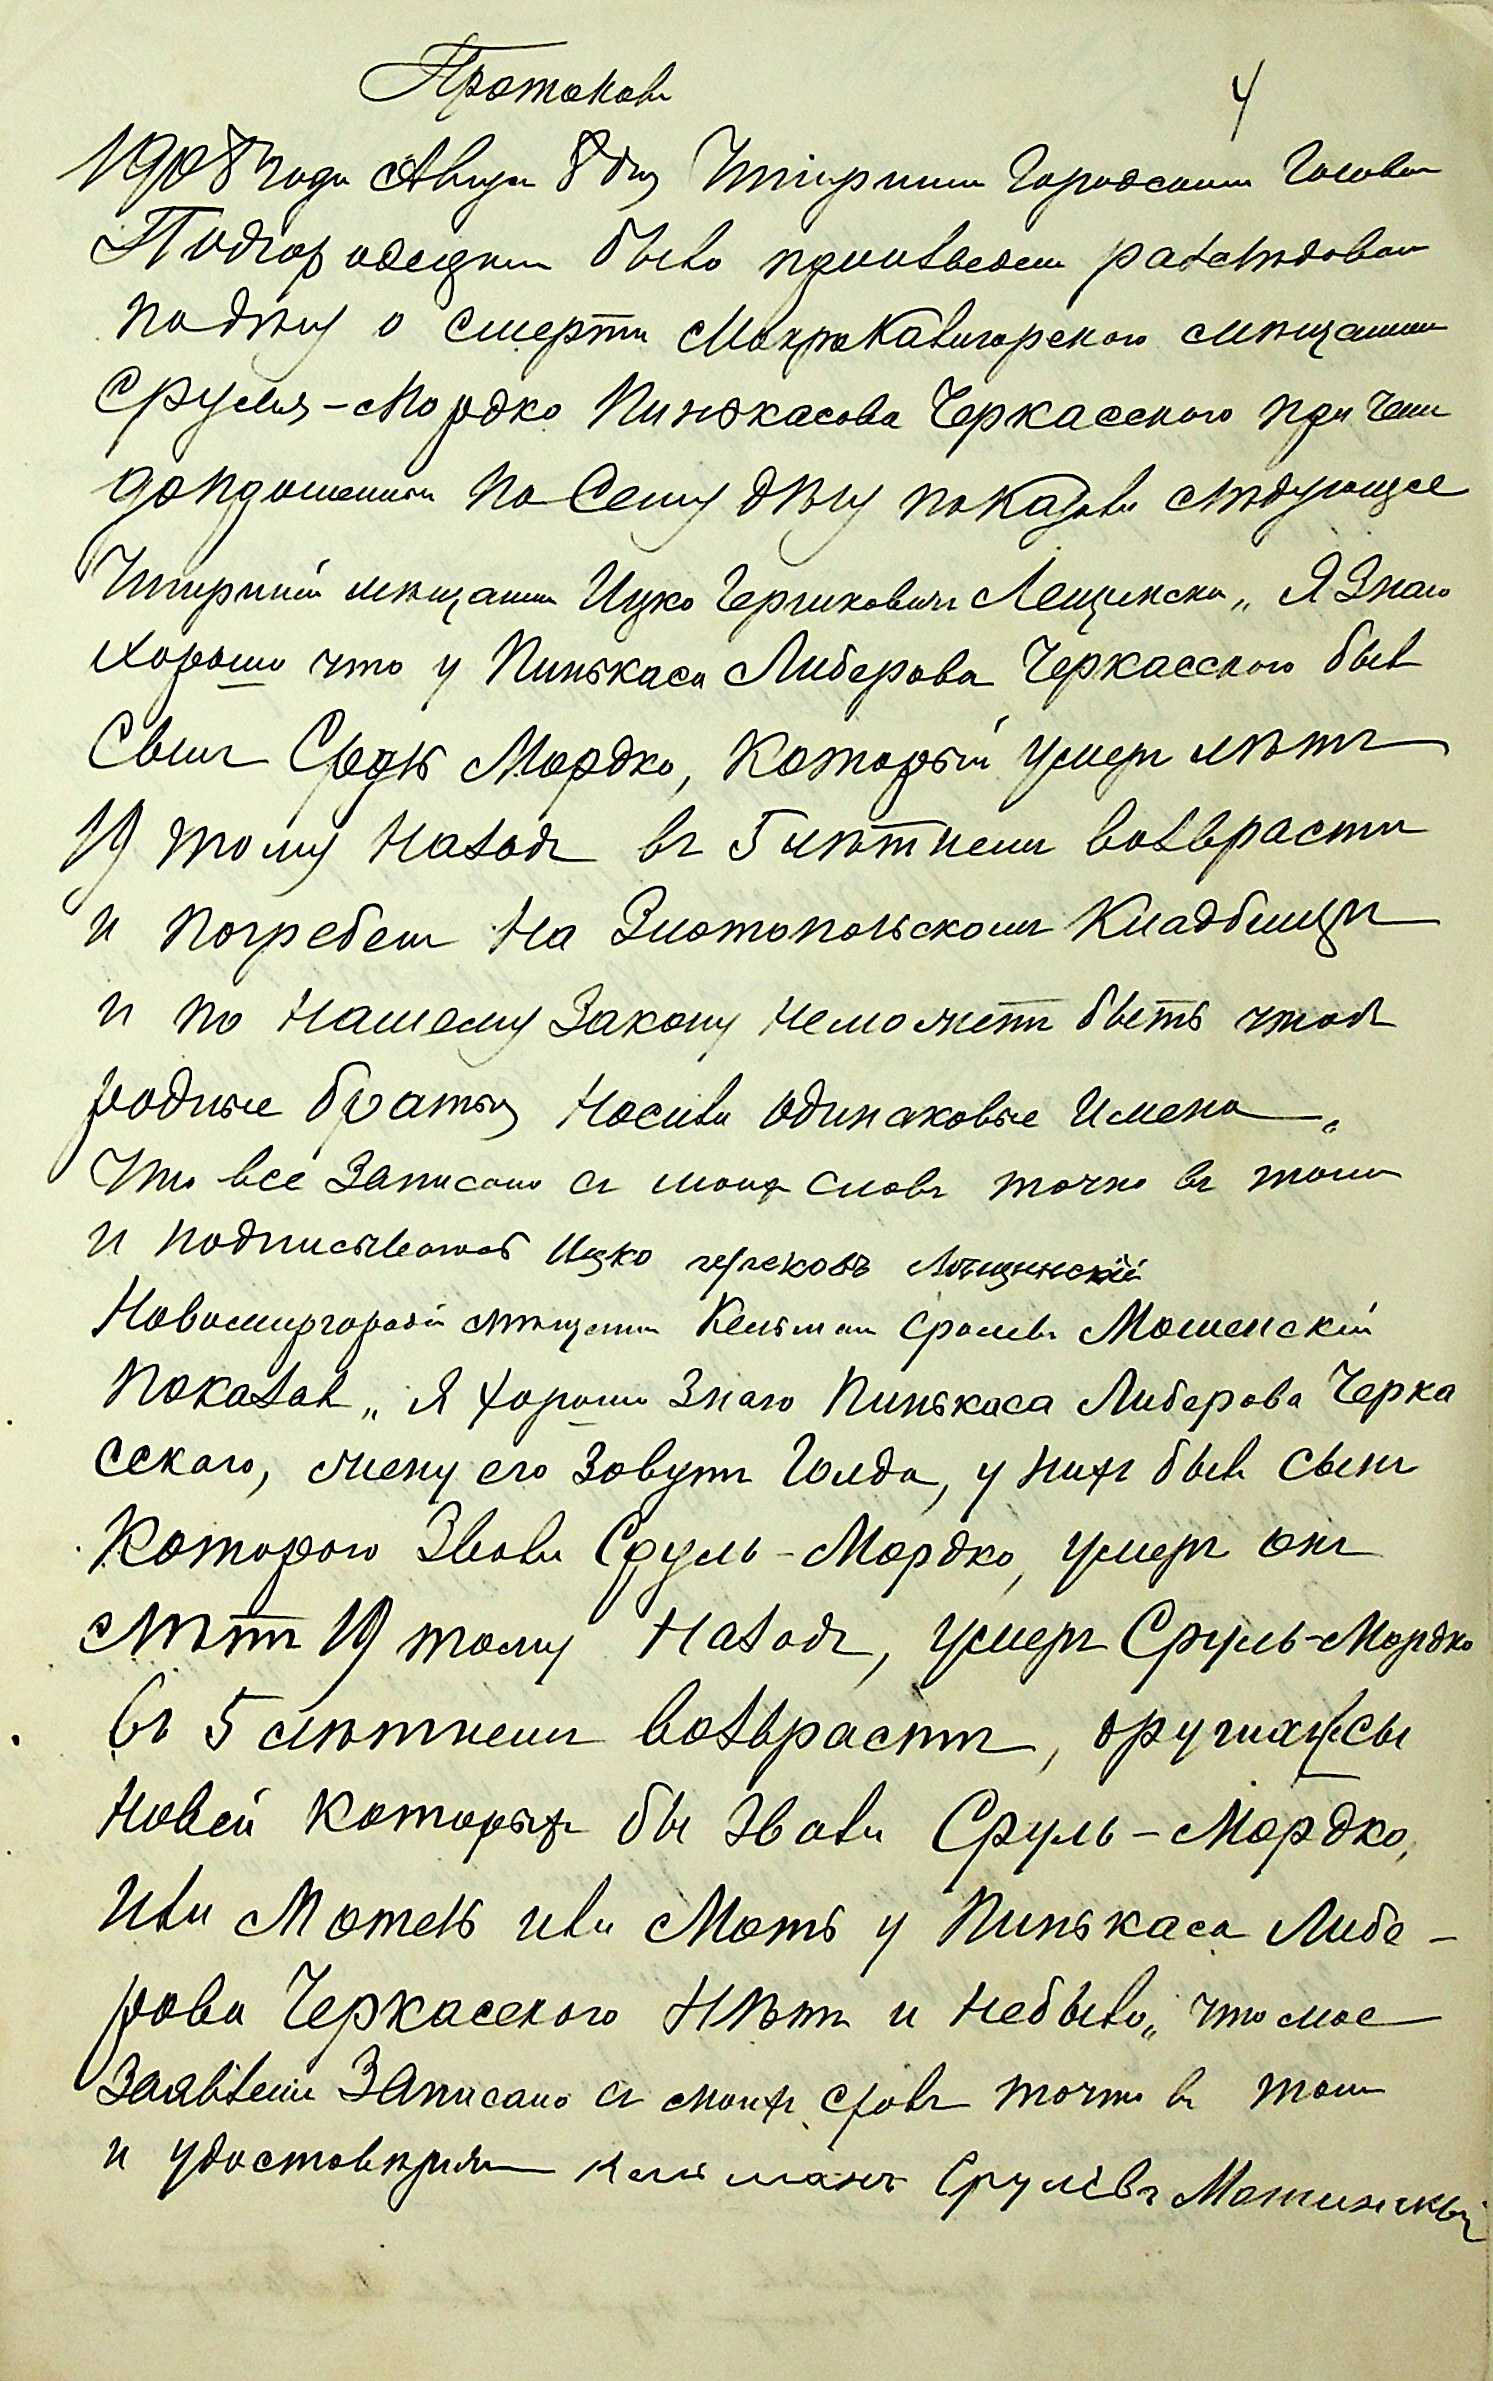 Протоколъ
4
1908 года Авгус 8 дня Шпирнымъ Городскимъ Голово
Подгородецкимъ было произведено разслѣдован
по дѣлу о смерти Мокрокалигорского мѣщанина
Сруля-Мордко Пинхкасова Черкасского при чемъ
допрошенныи по сему дѣлу показали слѣдующее
мѣщанинъ Ицко Гершковичъ Лещински „Я Знаю
хорошо что у Пинькаса Либерова Черкасского былъ
Сынъ Сруль Мордко, который умеръ лѣтъ
19 тому назадъ въ 5 лѣтнемъ возврасти
и погребенъ на Златопольскомъ Кладбищи
и по Нашему Закону неможетъ быть чтобъ
родные братья Носили одинаковые Имена„
Что все Записано съ моихъ словъ точно въ томъ
и подписываюсь Ицко герсковъ Лѣщинскій
Новомиргородій мѣщанинъ Кельман Сролевъ Мошенскій
Показалъ „Я хорошо Знаю Пинькаса Либерова Черка
сского, жену его Зовутъ Голда, у нихъ былъ сынъ
Которого Звали Сруль-Мордко, умеръ онъ
лѣтъ 19 тому Назадъ, умеръ Сруль-Мордко
въ 5 лѣтнемъ возврастѣ, другихъ сы
новей которыхъ бы Звали Сруль-Мордко,
Или Мотель или Моть у Пинькаса Либе-
рова Черкасского Нѣтъ и небыло„ что мое
Заявлении Записано съ моихъ словъ точно въ томъ
и удостовѣряю Кельманъ Срулевъ Мошинскы